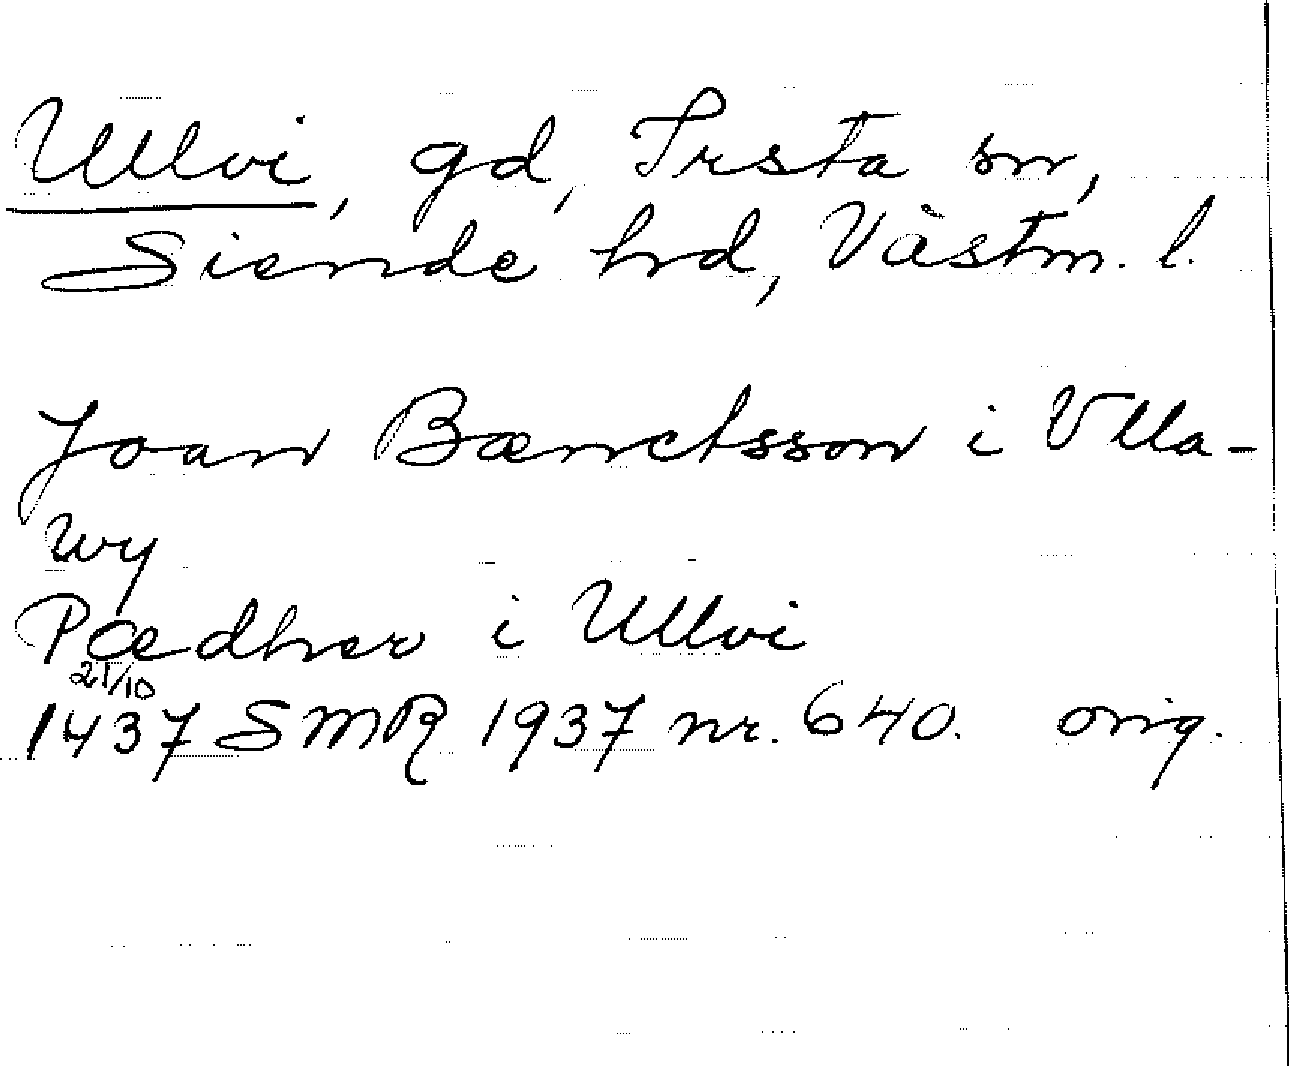 Ullvi, gd, Irsta sn,
Siende hrd, Västm. l.
Joan Bænctsson i Vlla-
wy
Pædher i Ullvi
21/10
1437 SMR 1937 nr. 640. orig.